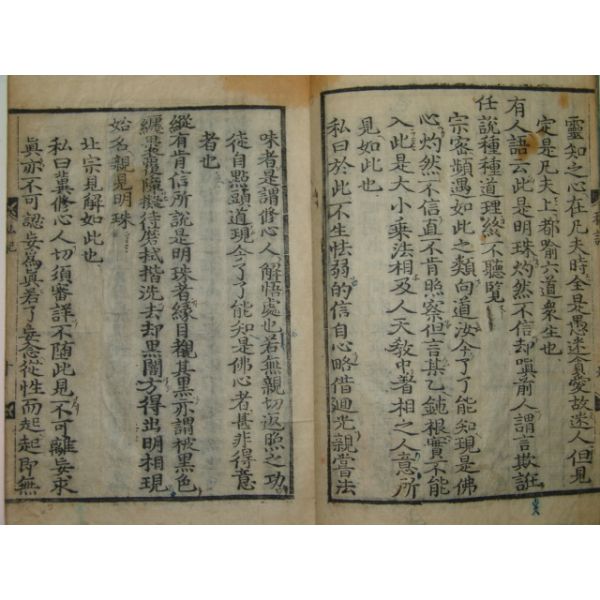 靈知之心在凡夫時全是愚迷貪愛故迷人但見
定是凡夫上都喩六道衆生也
有人語云此是明珠灼然不信却嗔前人謂言欺誑
任說種種道理終不聽覽
宗密頻遇如此之類向道汝今了了能知現是佛
心灼然不信直不肯照察但言某乙鈍根實不能
入此是大小乘法相及人天敎中著相之人意所
見如此也
私曰於此不生怯弱的信自心略借廻光親嘗法
味者是謂修心人解悟處也若無親切返照之功
徒自點頭道現今了了能知是佛心者甚非得意
者也
縱有肯信所說是明珠者緣目覩其黑亦謂被黑色
纏裹覆障擬待磨拭揩洗去却黑闇方得出明相現
始名親見明珠
北宗見解如此也
私曰冀修心人切須審詳不墮此見不可離妄求
眞亦不可認妄爲眞若了妄念從性而起起即無